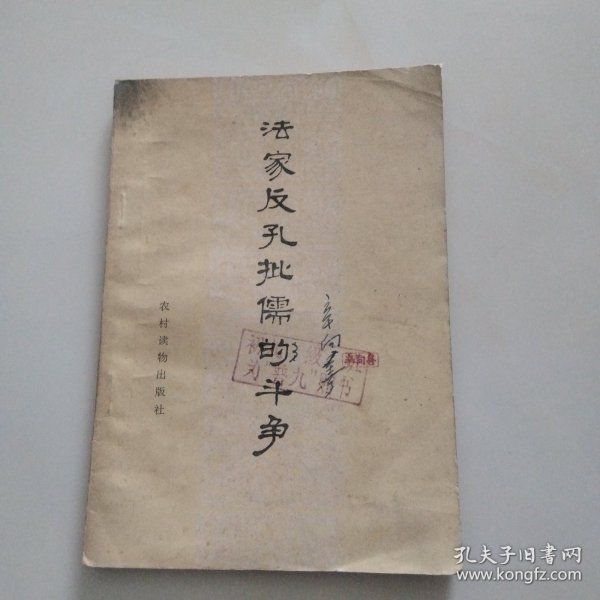 法家反孔批儒的斗争
农村读物出版社
章向善
孔夫子旧书网
www.kongfz.com